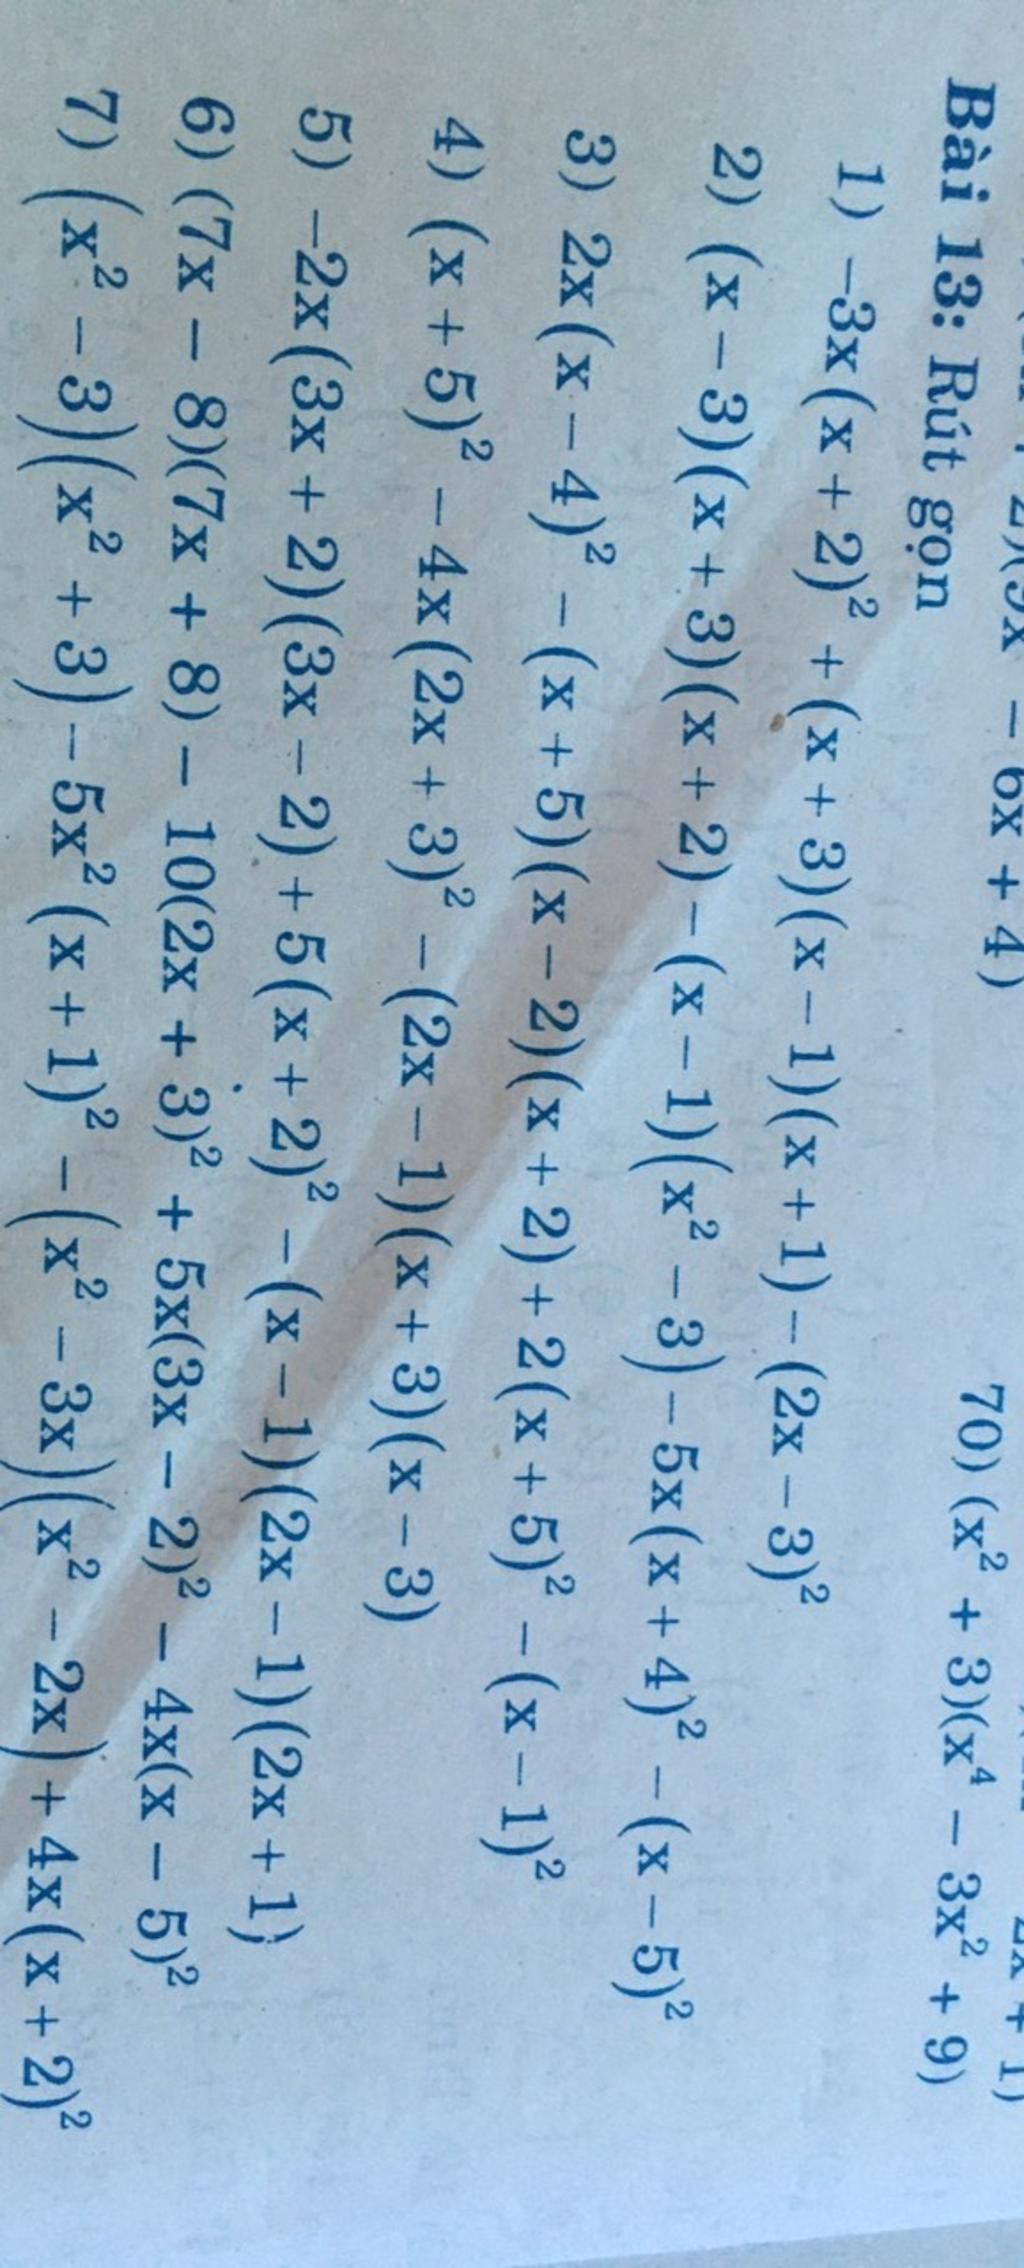 − 6x + 4)
70) (x² + 3)(x⁴ − 3x² + 9)
Bài 13: Rút gọn
1) −3x(x + 2)² + (x + 3)(x − 1)(x + 1) − (2x − 3)²
2) (x − 3)(x + 3)(x + 2) − (x − 1)(x² − 3) − 5x(x + 4)² − (x − 5)²
3) 2x(x − 4)² − (x + 5)(x − 2)(x + 2) + 2(x + 5)² − (x − 1)²
4) (x + 5)² − 4x(2x + 3)² − (2x − 1)(x + 3)(x − 3)
5) −2x(3x + 2)(3x − 2) + 5(x + 2)² − (x − 1)(2x − 1)(2x + 1)
6) (7x − 8)(7x + 8) − 10(2x + 3)² + 5x(3x − 2)² − 4x(x − 5)²
7) (x² − 3)(x² + 3) − 5x²(x + 1)² − (x² − 3x)(x² − 2x) + 4x(x + 2)²